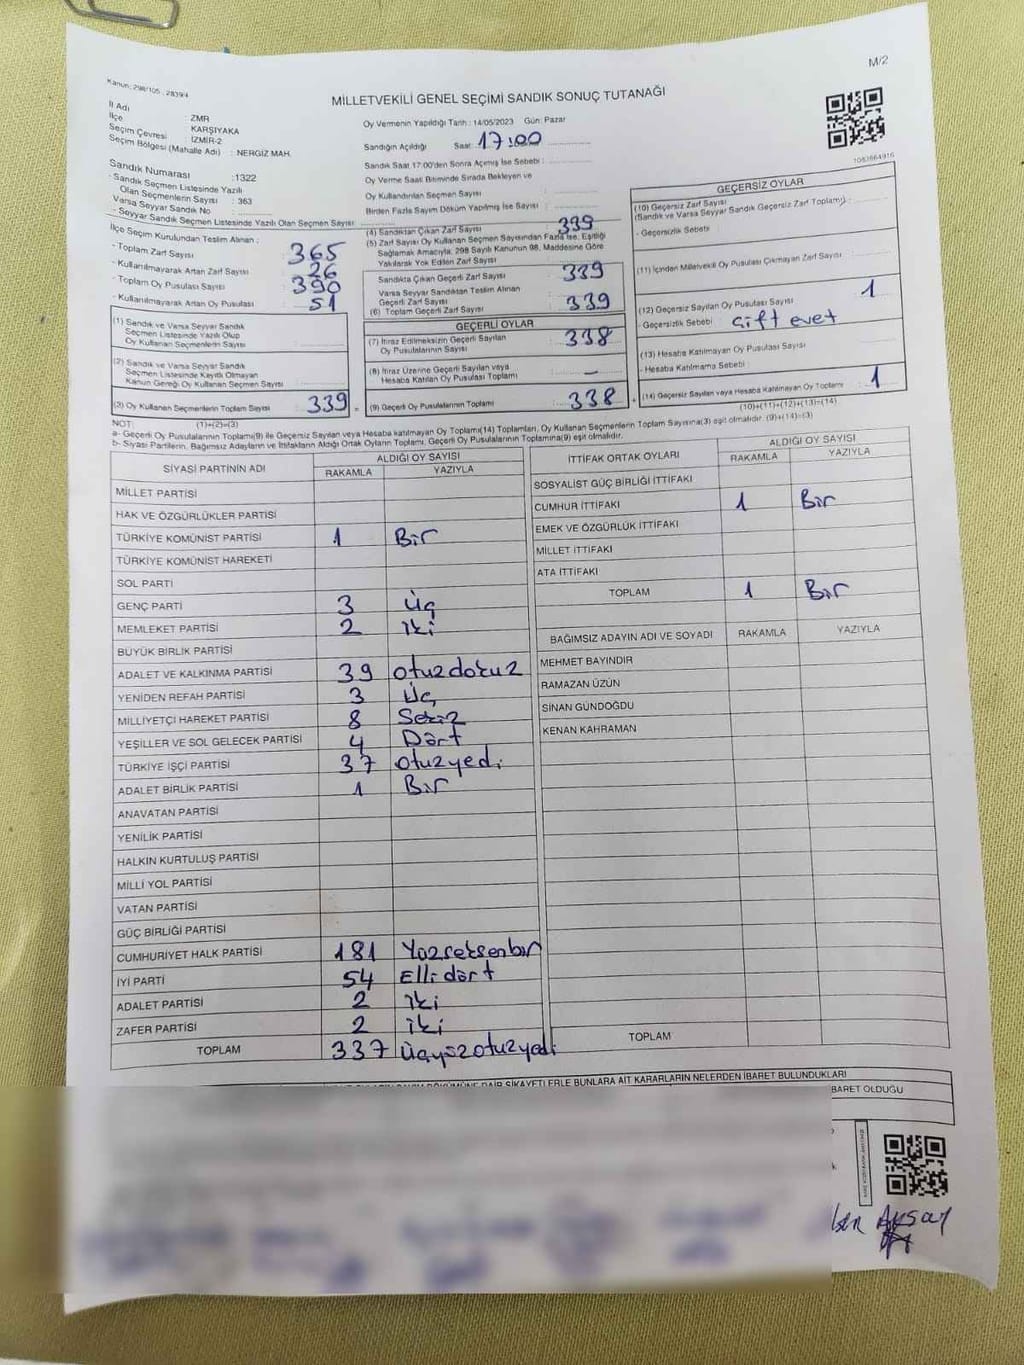 M/2
Kanun: 298/105 , 2839/4
MİLLETVEKİLİ GENEL SEÇİMİ SANDIK SONUÇ TUTANAĞI
İl Adı : ZMR
İlçe : KARŞIYAKA
Seçim Çevresi : İZMİR-2
Seçim Bölgesi (Mahalle Adı) : NERGİZ MAH.
Sandık Numarası :1322
- Sandık Seçmen Listesinde Yazılı
Olan Seçmenlerin Sayısı : 363
Varsa Seyyar Sandık No
- Seyyar Sandık Seçmen Listesinde Yazılı Olan Seçmen Sayısı
İlçe Seçim Kurulundan Teslim Alınan ;
- Toplam Zarf Sayısı : 365
- Kullanılmayarak Artan Zarf Sayısı : 26
- Toplam Oy Pusulası Sayısı : 390
- Kullanılmayarak Artan Oy Pusulası : 51
(1) Sandık ve Varsa Seyyar Sandık
Seçmen Listesinde Yazılı Olup
Oy Kullanan Seçmenlerin Sayısı :
(2) Sandık ve Varsa Seyyar Sandık
Seçmen Listesinde Kayıtlı Olmayan
Kanun Gereği Oy Kullanan Seçmen Sayısı :
(3) Oy Kullanan Seçmenlerin Toplam Sayısı : 339 =
Oy Vermenin Yapıldığı Tarih : 14/05/2023 Gün: Pazar
Sandığın Açıldığı Saat: 17:00
Sandık Saat 17:00'den Sonra Açılmış İse Sebebi :
Oy Verme Saati Bitiminde Sırada Bekleyen ve
Oy Kullandırılan Seçmen Sayısı :
Birden Fazla Sayım Döküm Yapılmış İse Sayısı :
(4) Sandıktan Çıkan Zarf Sayısı : 339
(5) Zarf Sayısı Oy Kullanan Seçmen Sayısından Fazla İse, Eşitliği
Sağlamak Amacıyla, 298 Sayılı Kanunun 98. Maddesine Göre
Yakılarak Yok Edilen Zarf Sayısı :
Sandıkta Çıkan Geçerli Zarf Sayısı : 339
Varsa Seyyar Sandıktan Teslim Alınan
Geçerli Zarf Sayısı :
(6) Toplam Geçerli Zarf Sayısı : 339
GEÇERLİ OYLAR
(7) İtiraz Edilmeksizin Geçerli Sayılan
Oy Pusulalarının Sayısı : 338
(8) İtiraz Üzerine Geçerli Sayılan veya
Hesaba Katılan Oy Pusulası Toplamı : –
(9) Geçerli Oy Pusulalarının Toplamı : 338 +
1083664916
GEÇERSİZ OYLAR
(10) Geçersiz Zarf Sayısı
(Sandık ve Varsa Seyyar Sandık Geçersiz Zarf Toplamı) :
- Geçersizlik Sebebi :
(11) İçinden Milletvekili Oy Pusulası Çıkmayan Zarf Sayısı :
(12) Geçersiz Sayılan Oy Pusulası Sayısı : 1
- Geçersizlik Sebebi : Çift evet
(13) Hesaba Katılmayan Oy Pusulası Sayısı :
- Hesaba Katılmama Sebebi :
(14) Geçersiz Sayılan veya Hesaba Katılmayan Oy Toplamı : 1
(10)+(11)+(12)+(13)=(14)
NOT: (1)+(2)=(3)
a- Geçerli Oy Pusulalarının Toplamı(9) ile Geçersiz Sayılan veya Hesaba katılmayan Oy Toplamı(14) Toplamları, Oy Kullanan Seçmenlerin Toplam Sayısına(3) eşit olmalıdır. (9)+(14)=(3)
b- Siyasi Partilerin, Bağımsız Adayların ve İttifakların Aldığı Ortak Oyların Toplamı, Geçerli Oy Pusulalarının Toplamına(9) eşit olmalıdır.
SİYASİ PARTİNİN ADI ALDIĞI OY SAYISI
RAKAMLA YAZIYLA
MİLLET PARTİSİ
HAK VE ÖZGÜRLÜKLER PARTİSİ
TÜRKİYE KOMÜNİST PARTİSİ 1 Bir
TÜRKİYE KOMÜNİST HAREKETİ
SOL PARTİ
GENÇ PARTİ 3 Üç
MEMLEKET PARTİSİ 2 iki
BÜYÜK BİRLİK PARTİSİ
ADALET VE KALKINMA PARTİSİ 39 otuzdokuz
YENİDEN REFAH PARTİSİ 3 Üç
MİLLİYETÇİ HAREKET PARTİSİ 8 Sekiz
YEŞİLLER VE SOL GELECEK PARTİSİ 4 Dört
TÜRKİYE İŞÇİ PARTİSİ 37 otuzyedi
ADALET BİRLİK PARTİSİ 1 Bir
ANAVATAN PARTİSİ
YENİLİK PARTİSİ
HALKIN KURTULUŞ PARTİSİ
MİLLİ YOL PARTİSİ
VATAN PARTİSİ
GÜÇ BİRLİĞİ PARTİSİ
CUMHURİYET HALK PARTİSİ 181 Yüzseksenbir
İYİ PARTİ 54 Ellidört
ADALET PARTİSİ 2 iki
ZAFER PARTİSİ 2 iki
TOPLAM 337 Üçyüzotuzyedi
İTTİFAK ORTAK OYLARI ALDIĞI OY SAYISI
RAKAMLA YAZIYLA
SOSYALİST GÜÇ BİRLİĞİ İTTİFAKI
CUMHUR İTTİFAKI 1 Bir
EMEK VE ÖZGÜRLÜK İTTİFAKI
MİLLET İTTİFAKI
ATA İTTİFAKI
TOPLAM 1 Bir
BAĞIMSIZ ADAYIN ADI VE SOYADI RAKAMLA YAZIYLA
MEHMET BAYINDIR
RAMAZAN ÜZÜN
SİNAN GÜNDOĞDU
KENAN KAHRAMAN
TOPLAM
DAİR ŞİKAYETLERLE BUNLARA AİT KARARLARIN NELERDEN İBARET BULUNDUKLARI
BARET OLDUĞU
Aksoy